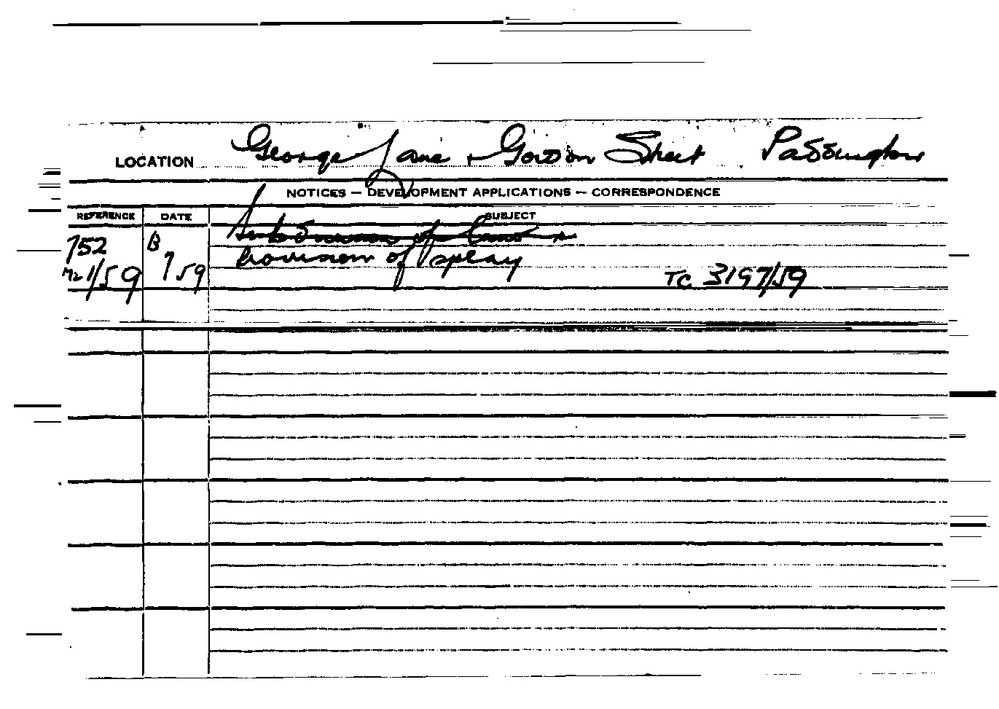 LOCATION George Lane + Gordon Street Paddington
NOTICES — DEVELOPMENT APPLICATIONS — CORRESPONDENCE
REFERENCE DATE SUBJECT
Subdivision of land &
752 8 Provision of splay
1/59 7 59 TC 3197/59